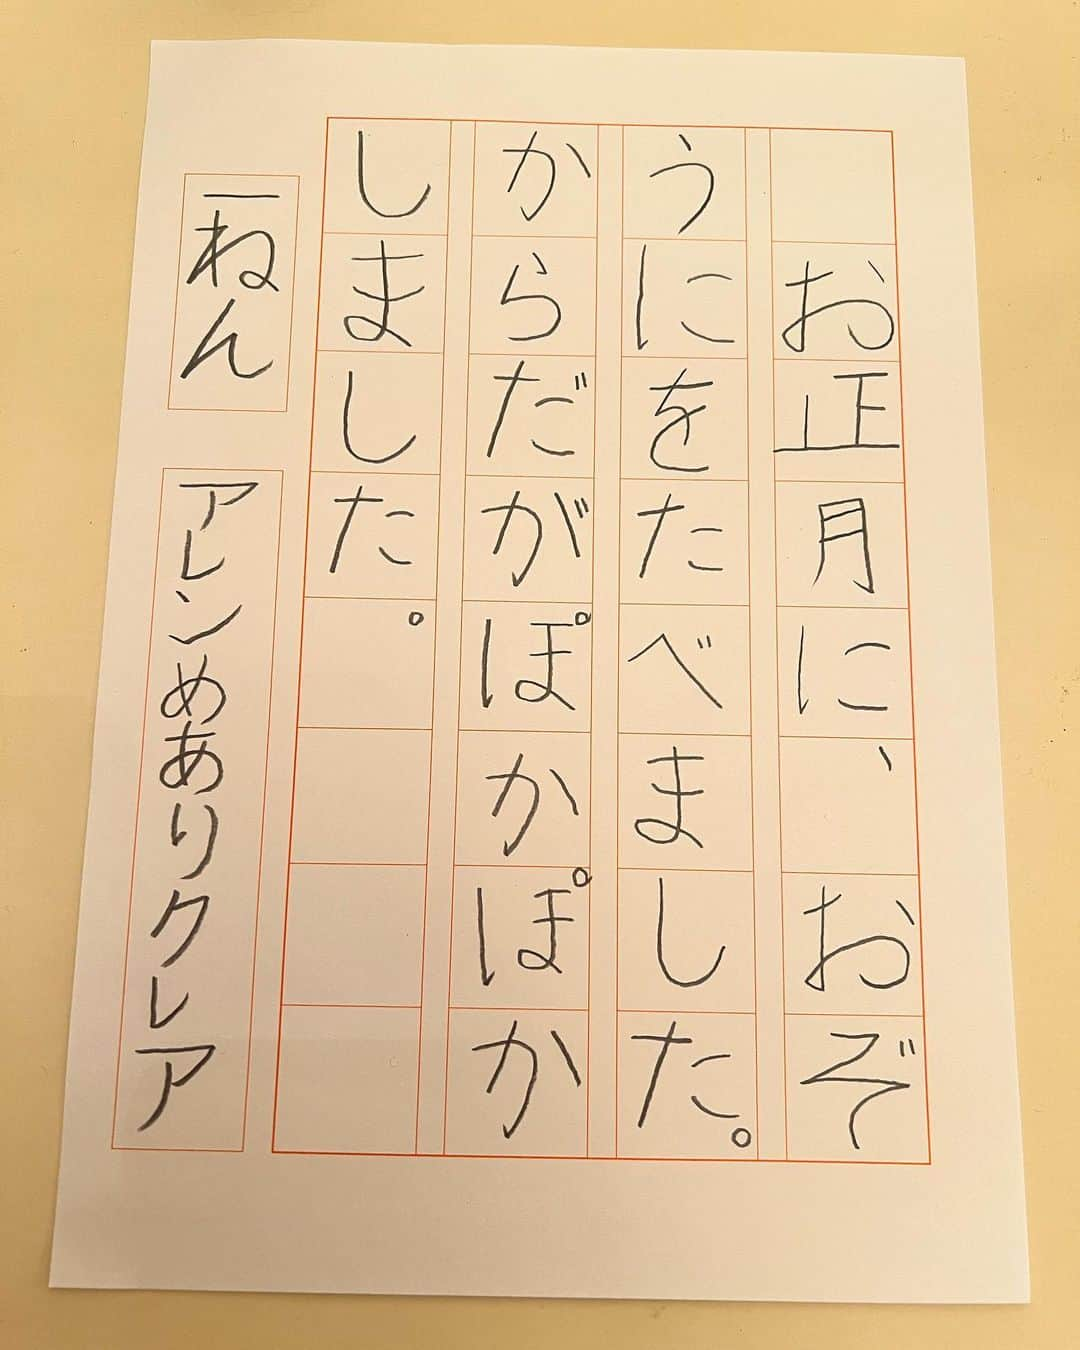 お正月に、おぞ
うにをたべました。
からだがぽかぽか
しました。
一ねん
アレンめありクレア